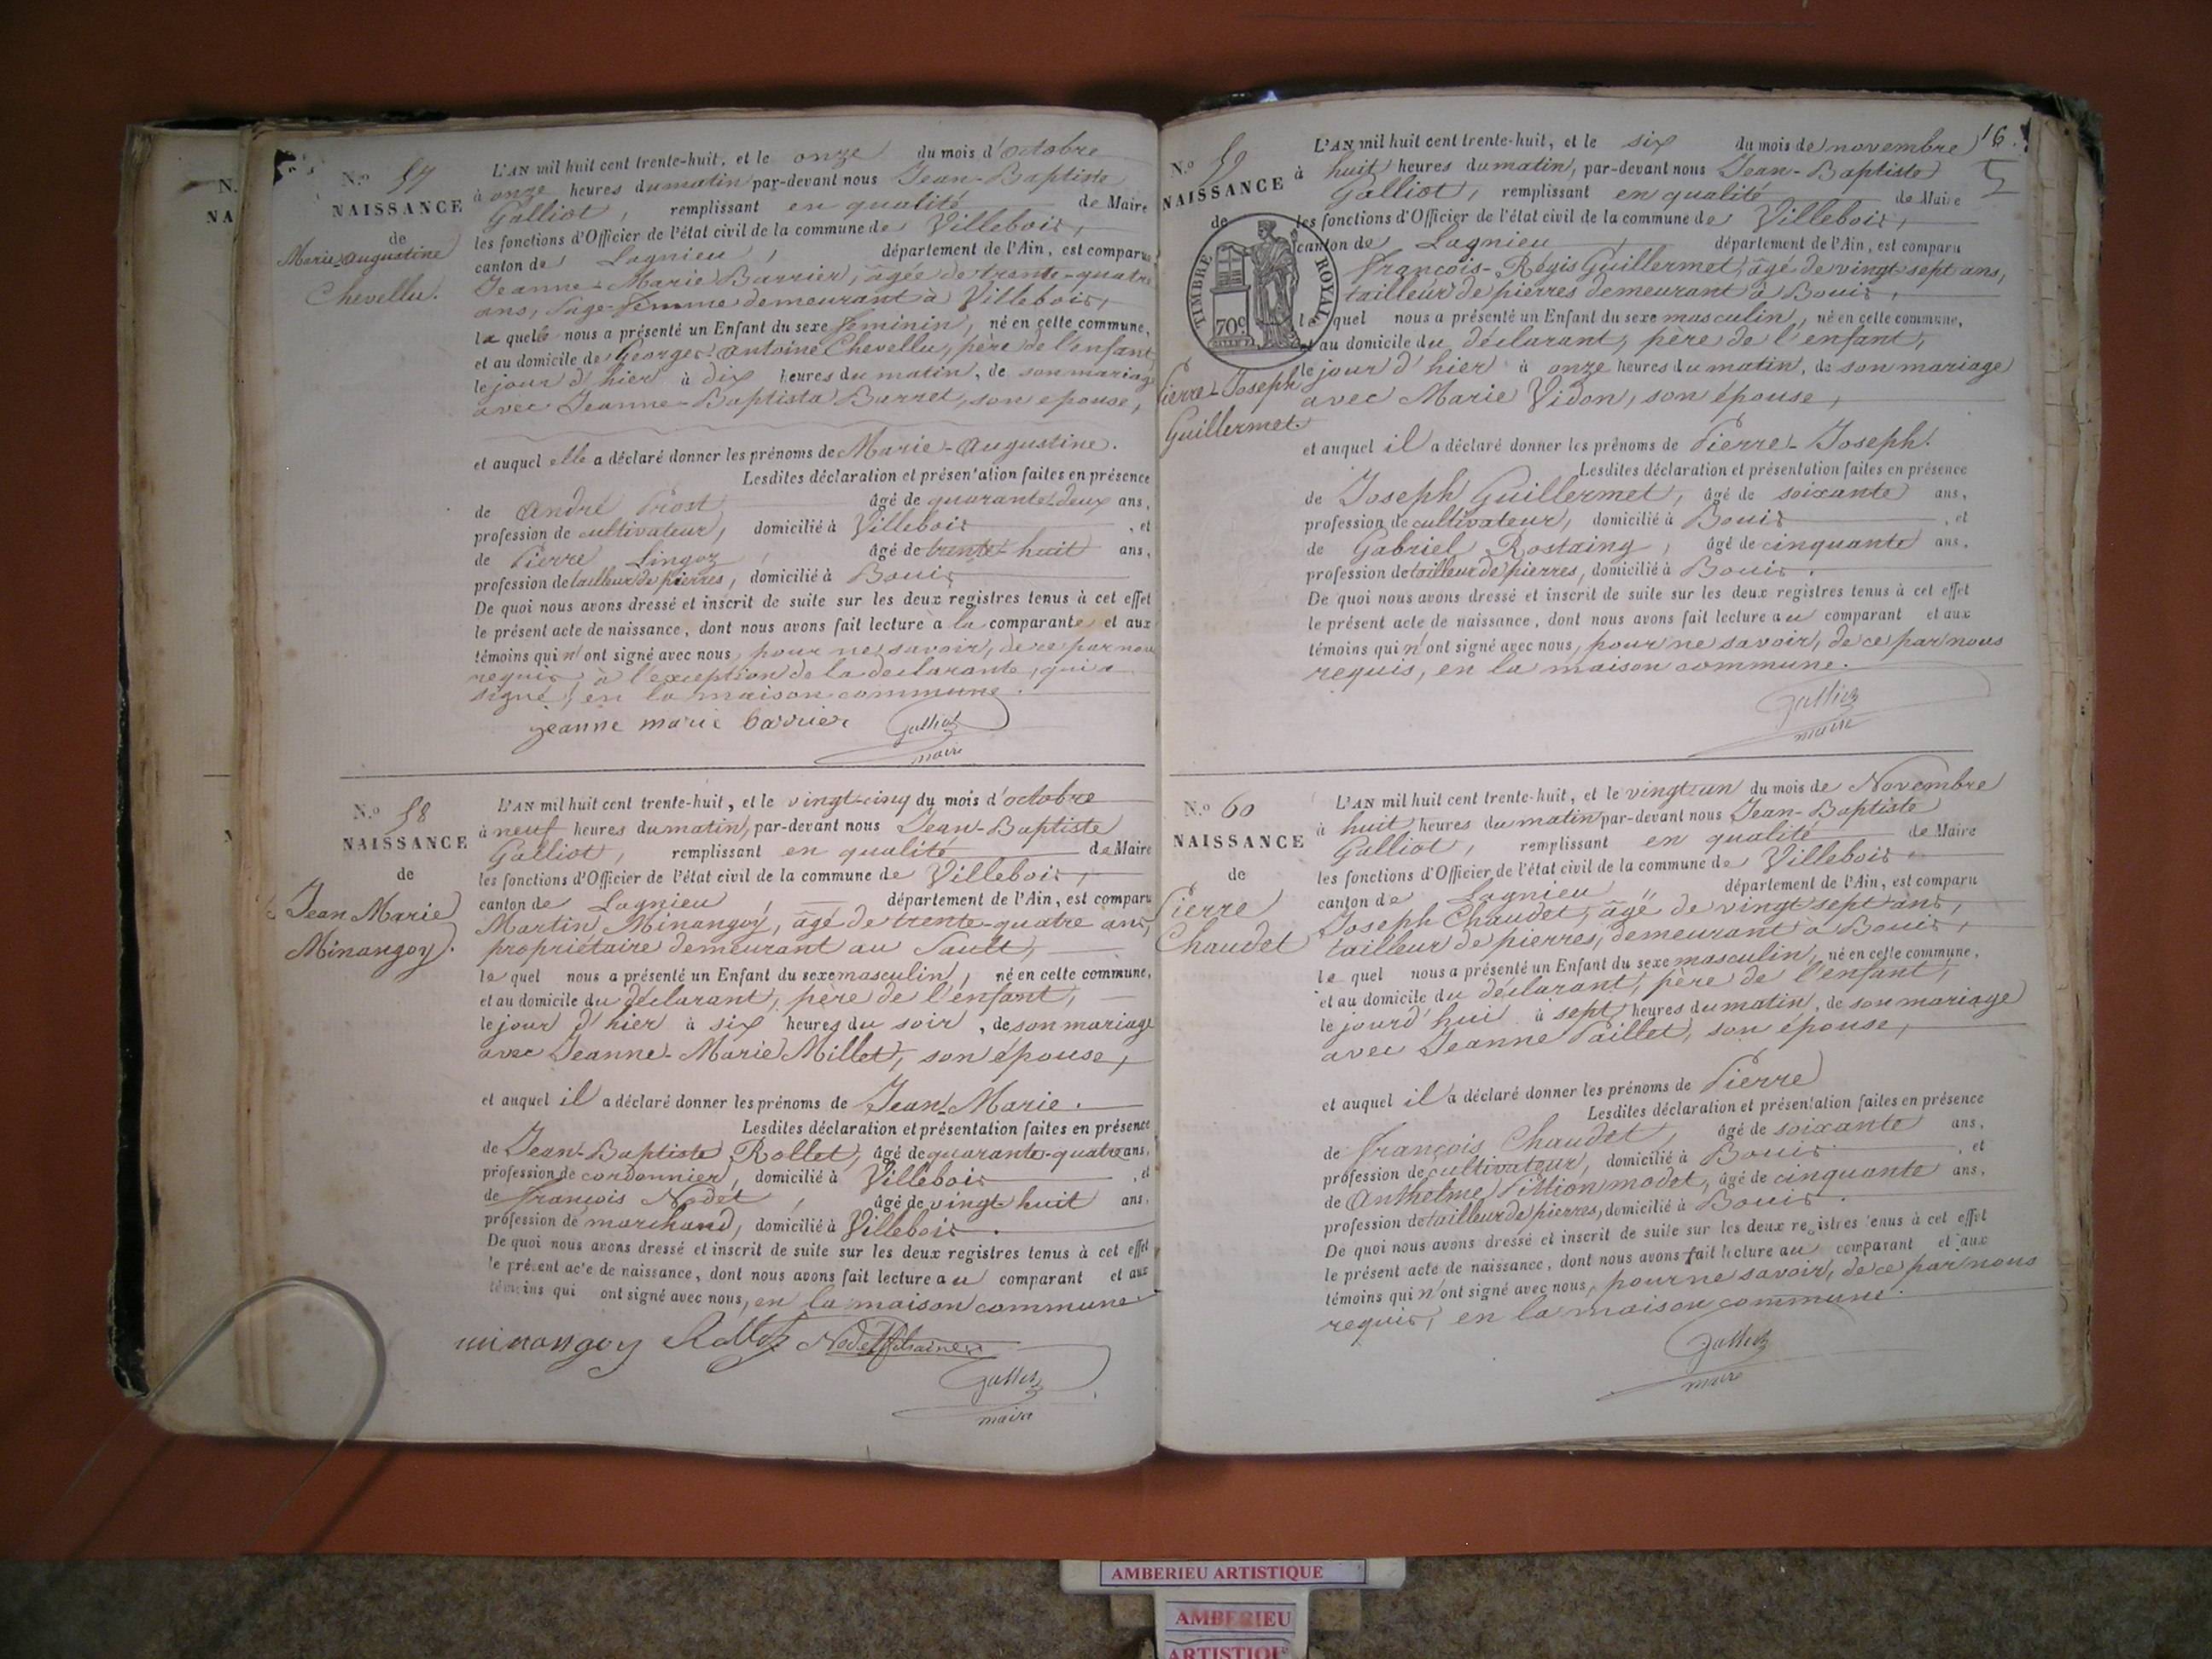 N.
NA
N.º 57
NAISSANCE
de
Marie-Augustine
Chevellu.
L'AN mil huit cent trente-huit, et le onze du mois d'octobre
à onze heures du matin par-devant nous Jean-Baptiste
Galliot, remplissant en qualité de Maire
les fonctions d'Officier de l'état civil de la commune de Villebois,
canton de Lagnieu, département de l'Ain, est comparue
Jeanne-Marie Barrier, âgée de trente-quatre
ans, Sage-femme demeurant à Villebois,
la quelle nous a présenté un Enfant du sexe féminin, né en cette commune,
et au domicile de Georges-Antoine Chevellu, père de l'enfant,
le jour d'hier à dix heures du matin, de son mariage
avec Jeanne-Baptista Barret, son épouse,
et auquel elle a déclaré donner les prénoms de Marie-Augustine.
Lesdites déclaration et présentation faites en présence
de André Prost âgé de quarante-deux ans,
profession de cultivateur, domicilié à Villebois, et
de Pierre Lingoz, âgé de trente-huit ans,
profession de tailleur de pierres, domicilié à Bouis
De quoi nous avons dressé et inscrit de suite sur les deux registres tenus à cet effet
le présent acte de naissance, dont nous avons fait lecture à la comparante et aux
témoins qui n'ont signé avec nous, pour ne savoir, de ce par nous
requis, à l'exception de la déclarante, qui a
signé, en la maison commune.
jeanne marie barrier Galliot
maire
N.º 58
NAISSANCE
de
Jean Marie
Minangoy.
L'AN mil huit cent trente-huit, et le vingt-cinq du mois d'octobre
à neuf heures du matin, par-devant nous Jean-Baptiste
Galliot, remplissant en qualité de Maire
les fonctions d'Officier de l'état civil de la commune de Villebois,
canton de Lagnieu, département de l'Ain, est comparu
Martin Minangoy, âgé de trente-quatre ans,
propriétaire demeurant au Sault,
le quel nous a présenté un Enfant du sexe masculin, né en cette commune,
et au domicile du déclarant, père de l'enfant,
le jour d'hier à six heures du soir, de son mariage
avec Jeanne-Marie Millet, son épouse,
et auquel il a déclaré donner les prénoms de Jean-Marie.
Lesdites déclaration et présentation faites en présence
de Jean-Baptiste Rollet, âgé de quarante-quatre ans,
profession de cordonnier, domicilié à Villebois, et
de François Nodet, âgé de vingt huit ans,
profession de marchand, domicilié à Villebois.
De quoi nous avons dressé et inscrit de suite sur les deux registres tenus à cet effet
le présent acte de naissance, dont nous avons fait lecture au comparant et aux
témoins qui ont signé avec nous, en la maison commune.
minangoy Rollet Nodet
Galliot
maire
16
N.º 59
NAISSANCE
de
TIMBRE ROYAL
70c
Pierre-Joseph
Guillermet.
L'AN mil huit cent trente-huit, et le six du mois de novembre
à huit heures du matin, par-devant nous Jean-Baptiste
Galliot, remplissant en qualité de Maire
les fonctions d'Officier de l'état civil de la commune de Villebois,
canton de Lagnieu, département de l'Ain, est comparu
François-Régis Guillermet, âgé de vingt-sept ans,
tailleur de pierres demeurant à Bouis,
le quel nous a présenté un Enfant du sexe masculin, né en cette commune,
et au domicile du déclarant, père de l'enfant,
le jour d'hier à onze heures du matin, de son mariage
avec Marie Vidon, son épouse,
et auquel il a déclaré donner les prénoms de Pierre-Joseph.
Lesdites déclaration et présentation faites en présence
de Joseph Guillermet, âgé de soixante ans,
profession de cultivateur, domicilié à Bouis, et
de Gabriel Rostaing, âgé de cinquante ans,
profession de tailleur de pierres, domicilié à Bouis.
De quoi nous avons dressé et inscrit de suite sur les deux registres tenus à cet effet
le présent acte de naissance, dont nous avons fait lecture au comparant et aux
témoins qui n'ont signé avec nous, pour ne savoir, de ce par nous
requis, en la maison commune.
Galliot
maire
N.º 60
NAISSANCE
de
Pierre
Chaudet
L'AN mil huit cent trente-huit, et le vingt-un du mois de Novembre
à huit heures du matin par-devant nous Jean-Baptiste
Galliot, remplissant en qualité de Maire
les fonctions d'Officier de l'état civil de la commune de Villebois
canton de Lagnieu " département de l'Ain, est comparu
Joseph Chaudet, âgé de vingt sept ans,
tailleur de pierres, demeurant à Bouis,
le quel nous a présenté un Enfant du sexe masculin, né en cette commune,
et au domicile du déclarant, père de l'enfant,
le jourd'hui à sept heures du matin, de son mariage
avec Jeanne Paillet, son épouse,
et auquel il a déclaré donner les prénoms de Pierre
Lesdites déclaration et présentation faites en présence
de François Chaudet, âgé de soixante ans,
profession de cultivateur, domicilié à Bouis, et
de Anthelme Pittion modot, âgé de cinquante ans,
profession de tailleur de pierres, domicilié à Bouis.
De quoi nous avons dressé et inscrit de suite sur les deux registres tenus à cet effet
le présent acte de naissance, dont nous avons fait lecture au comparant et aux
témoins qui n'ont signé avec nous, pour ne savoir, de ce par nous
requis, en la maison commune.
Galliot
maire
AMBERIEU ARTISTIQUE
AMBERIEU
ARTISTIQUE